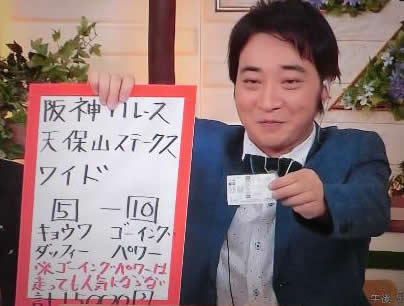 阪神11レース
天保山ステークス
ワイド
5 ― 10
キョウワ ゴーイング
ダッフィー パワー
※ゴーイングパワーは
走っても人気
午後